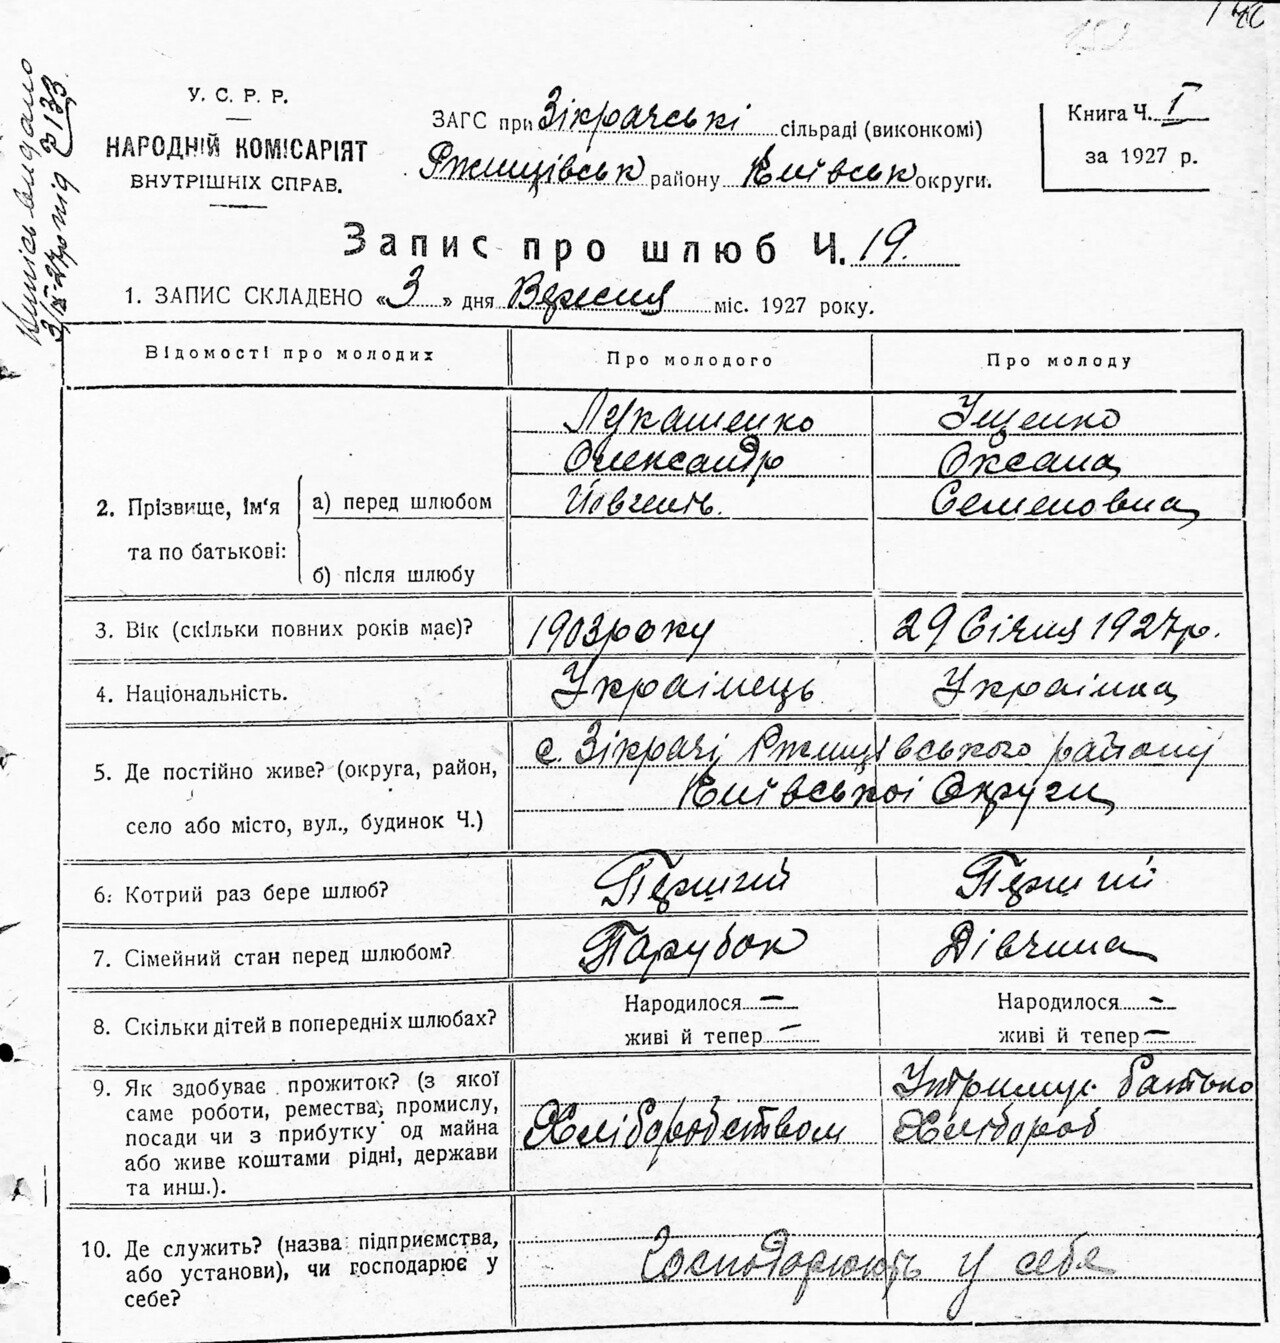 146
У. С. Р. Р.
НАРОДНІЙ КОМІСАРІЯТ
ВНУТРІШНІХ СПРАВ.
ЗАГС при Зікрачські сільраді (виконкомі)
Ржищівськ району Київськ округи.
Книга Ч. I
за 1927 р.
Випись видано
3/IX 27 р під № 133.
Запис про шлюб Ч. 19.
1. ЗАПИС СКЛАДЕНО «3» дня Вересня міс. 1927 року.
Відомості про молодих Про молодого Про молоду
Лукашенко Ущенко
Олександр Оксана
2. Прізвище, ім'я та по батькові: а) перед шлюбом Йовгень. Семеновна
б) після шлюбу
3. Вік (скільки повних років має)? 1903 року 29 Січня 1927 р.
4. Національність. Украінець Украінка
5. Де постійно живе? (округа, район, с. Зікрачі Ржищівського району
село або місто, вул., будинок Ч.) Київськоі Округи
6. Котрий раз бере шлюб? Перший Перший
7. Сімейний стан перед шлюбом? Парубок Дівчина
8. Скільки дітей в попередніх шлюбах? Народилося — Народилося —
живі й тепер — живі й тепер —
9. Як здобуває прожиток? (з якої Утримує батько
саме роботи, ремества, промислу,
посади чи з прибутку од майна Хліборобством Хлібороб
або живе коштами рідні, держави
та инш.).
10. Де служить? (назва підприємства,
або установи), чи господарює у Господарюють у себе
себе?